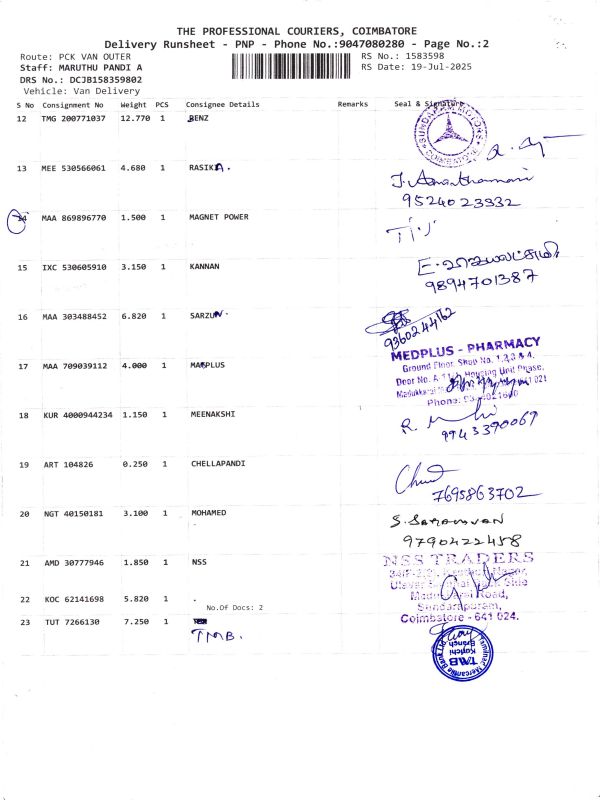 THE PROFESSIONAL COURIERS, COIMBATORE
Delivery Runsheet - PNP - Phone No.:9047080280 - Page No.:2
Route: PCK VAN OUTER RS No.: 1583598
Staff: MARUTHU PANDI A RS Date: 19-Jul-2025
DRS No.: DCJB158359802
Vehicle: Van Delivery
S No Consignment No Weight PCS Consignee Details Remarks Seal & Signature
12 TMG 200771037 12.770 1 BENZ
SUNDARAM MOTORS
COIMBATORE
13 MEE 530566061 4.680 1 RASIKA.
9524023932
14 MAA 869896770 1.500 1 MAGNET POWER
15 IXC 530605910 3.150 1 KANNAN
9894701387
16 MAA 303488452 6.820 1 SARZUN.
9360244162
17 MAA 709039112 4.000 1 MAPLUS
MEDPLUS - PHARMACY
Ground Floor, Shop No. 1,2,3 & 4,
Housing Unit Phase,
Phone:
18 KUR 4000944234 1.150 1 MEENAKSHI
9943390069
19 ART 104826 0.250 1 CHELLAPANDI
7695863702
20 NGT 40150181 3.100 1 MOHAMED
S. Saravanan
9790422458
21 AMD 30777946 1.850 1 NSS
NSS TRADERS
Road,
Sundarapuram,
Coimbatore - 641 024.
22 KOC 62141698 5.820 1 .
No.Of Docs: 2
23 TUT 7266130 7.250 1
TMB.
Tamilnad Mercantile Bank Ltd
TMB
Branch